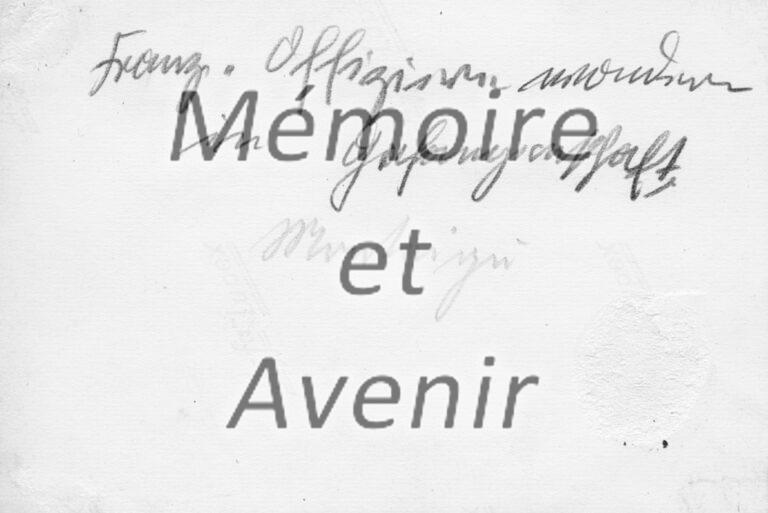 Franz. Offiziere wandern
in Gefangenschaft
Mémoire
et
Avenir